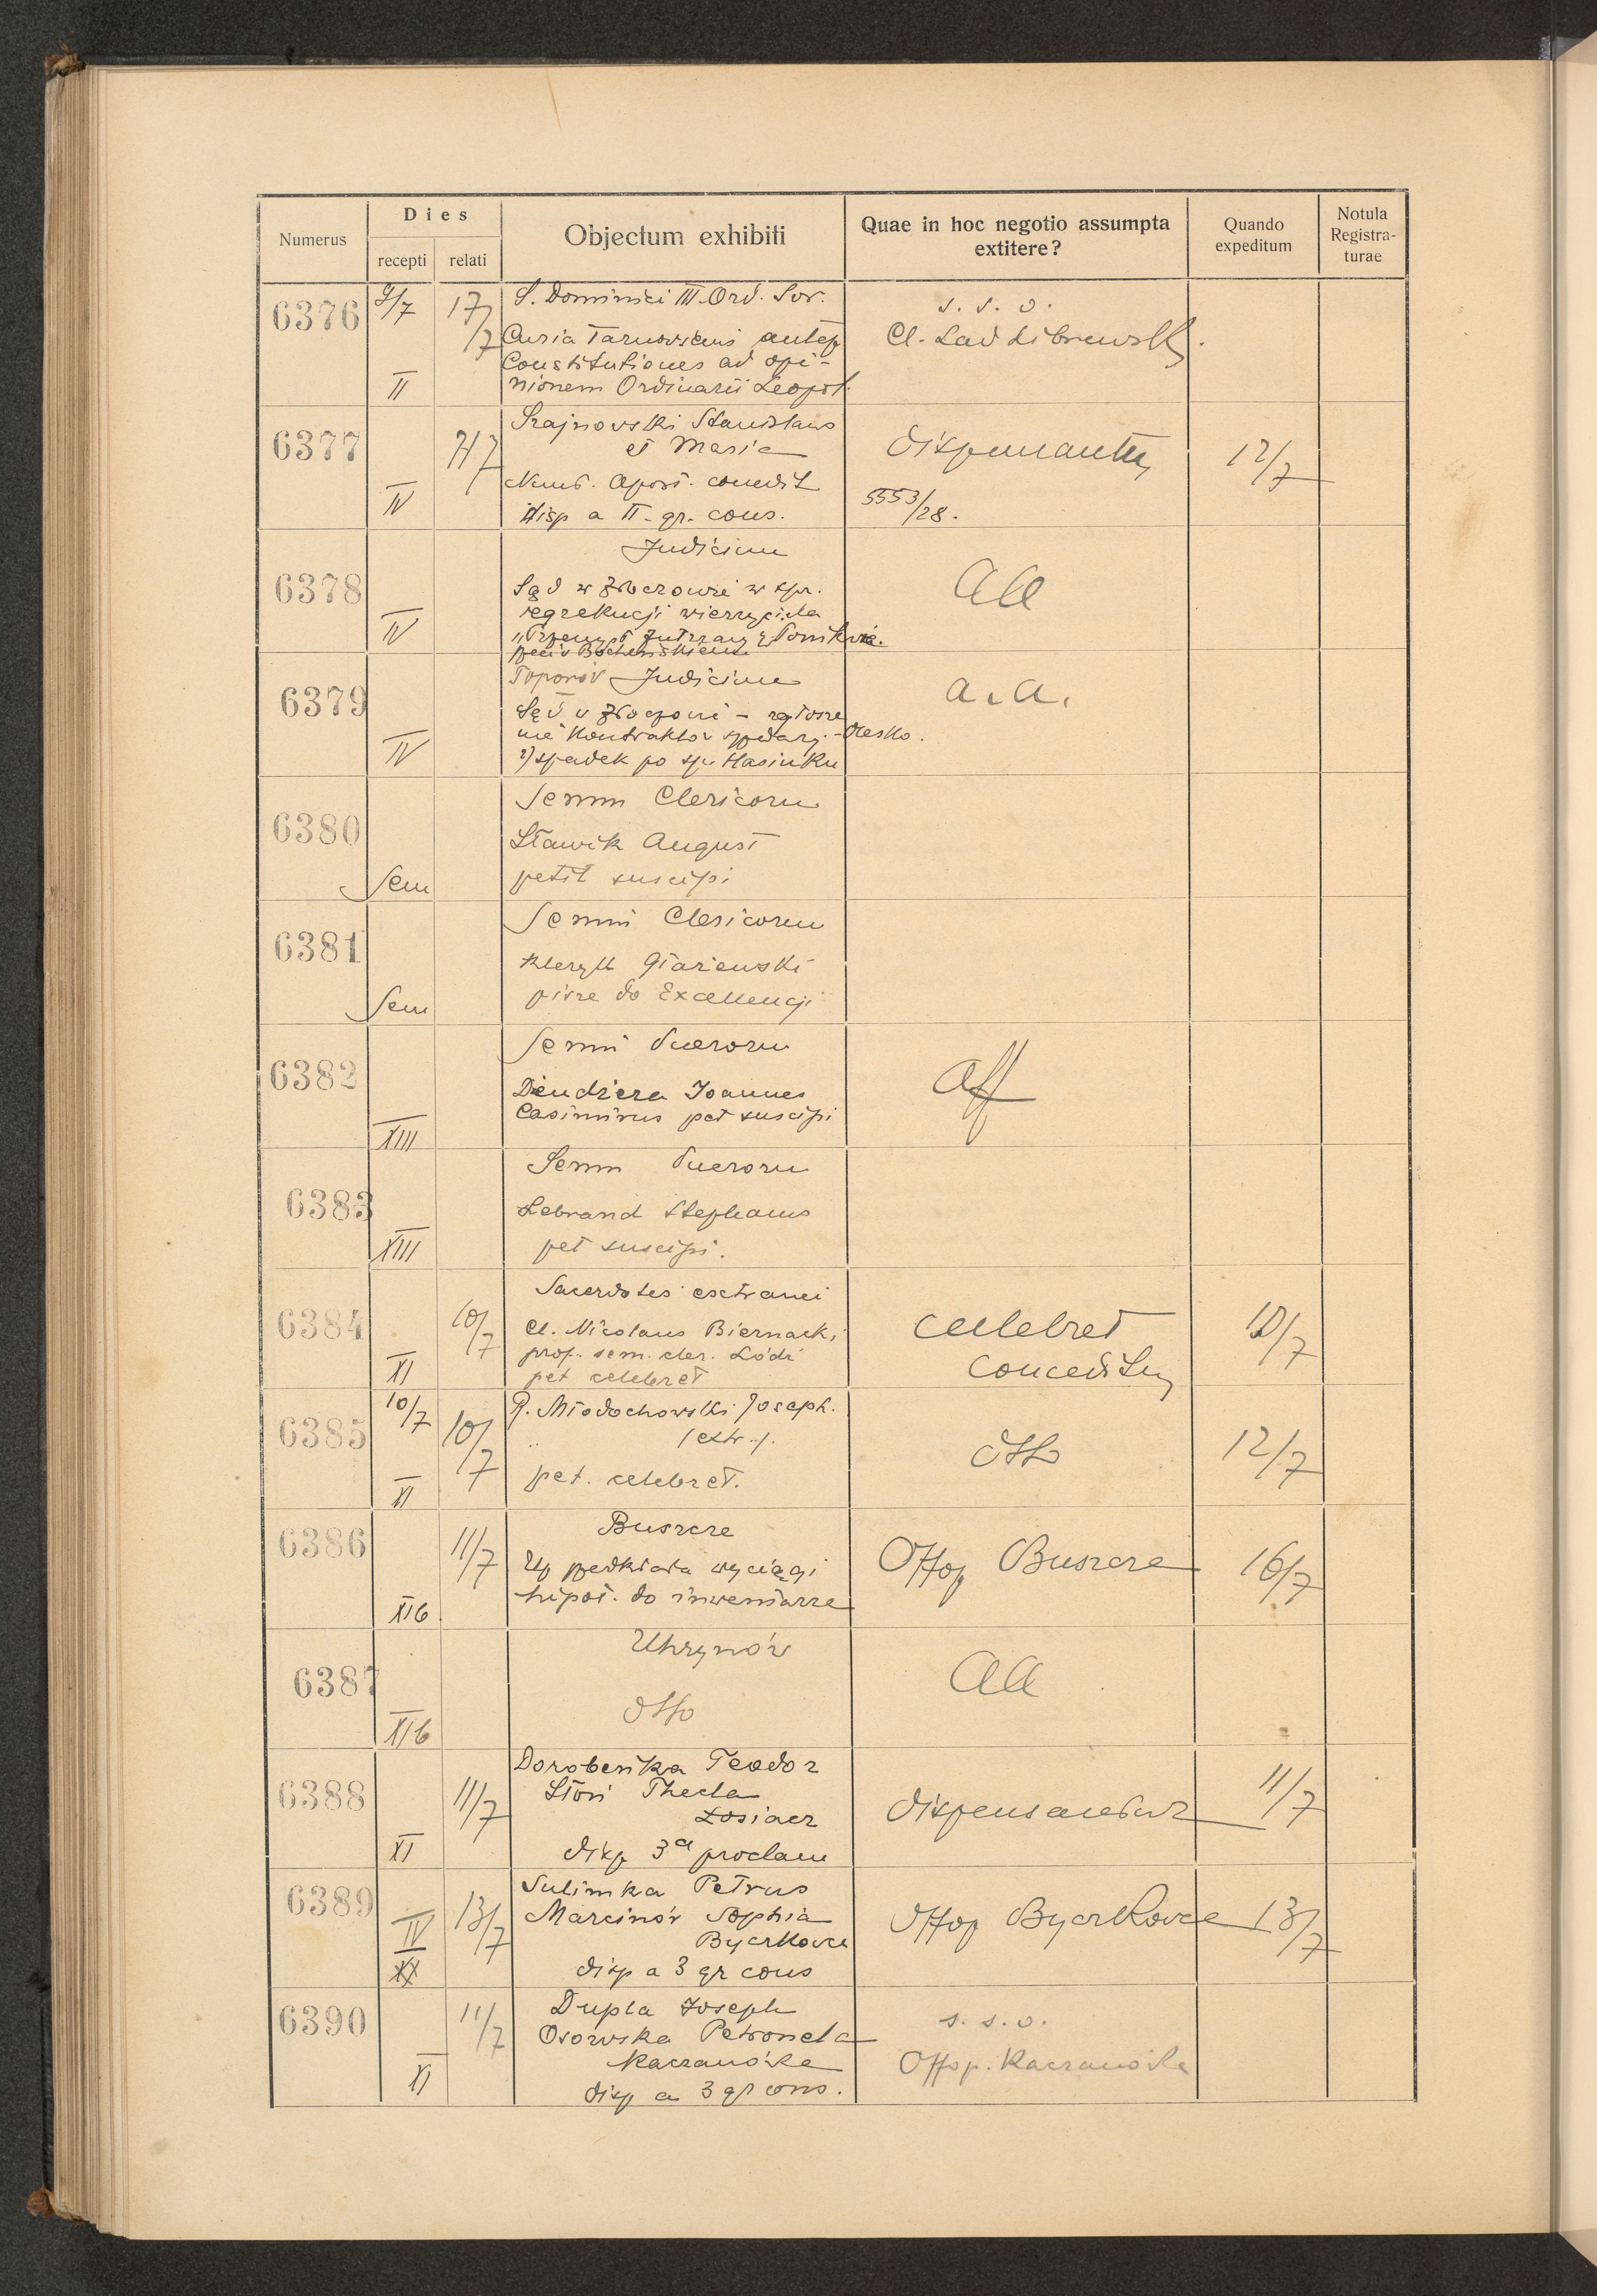 Numerus
Dies
recepti
relati
Objectum exhibiti
Quae in hoc negotio assumpta
extitere?
Quando
expeditum
Notula
Registra-
turae
6376
9/7
II
17/7
S. Dominici III. Ord. Sor.
Curia Tarnoviensis
Constitutiones ad opi-
nionem Ordinarii Leopol.
s. s. o.
Cl. Lad
6377
IV
Szajnowski Stanislaus
et Maria
Nunt. Apost. concedit
disp a II. gr. cons.
5553/28.
12/7
6378
IV
Judicium
Sąd w w spr.
aa
6379
IV
Toporów Judicium
Sąd
kontraktów - Olesko.
2) spadek po śp.
a. a.
6380
Sem
Semin Clericoru
Sławik August
petit suscipi
6381
Sem
Semin Clericorum
Kleryk
pisze do Excellencji
6382
XIII
Semin Pueroru
Joannes
Casimirus pet suscipi
aff
6383
XIII
Semin Pueroru
Lebrand Stephanus
pet suscipi.
6384
XI
10/7
Sacerdotes extranei
Cl. Nicolaus Biernacki
prof. sem. cler. Łódź
pet celebret
celebret
conceditur
10/7
6385
10/7
XI
10/7
R. Miodochowski Joseph.
/extr./.
pet. celebret.
dtto
12/7
6386
XIb
11/7
Buszcze
Up przedkłada wyciągi
hipot. do inwentarza
Offop Buszcze
16/7
6387
XIb
Uhrynów
dtto
aa
6388
XI
11/7
Dorobenka Teodor
Słoń Thecla
Łosiacz
disp 3a proclam
dispensantur
11/7
6389
IV
XX
13/7
Sulimka Petrus
Marcinów Sophia
Byczkowce
disp a 3 gr cons
Offop Byczkowce
13/7
6390
XI
11/7
Dupla Joseph
Osowska Petronela
Kaczanówka
disp a 3 gr cons.
s. s. o.
Offop. Kaczanówka